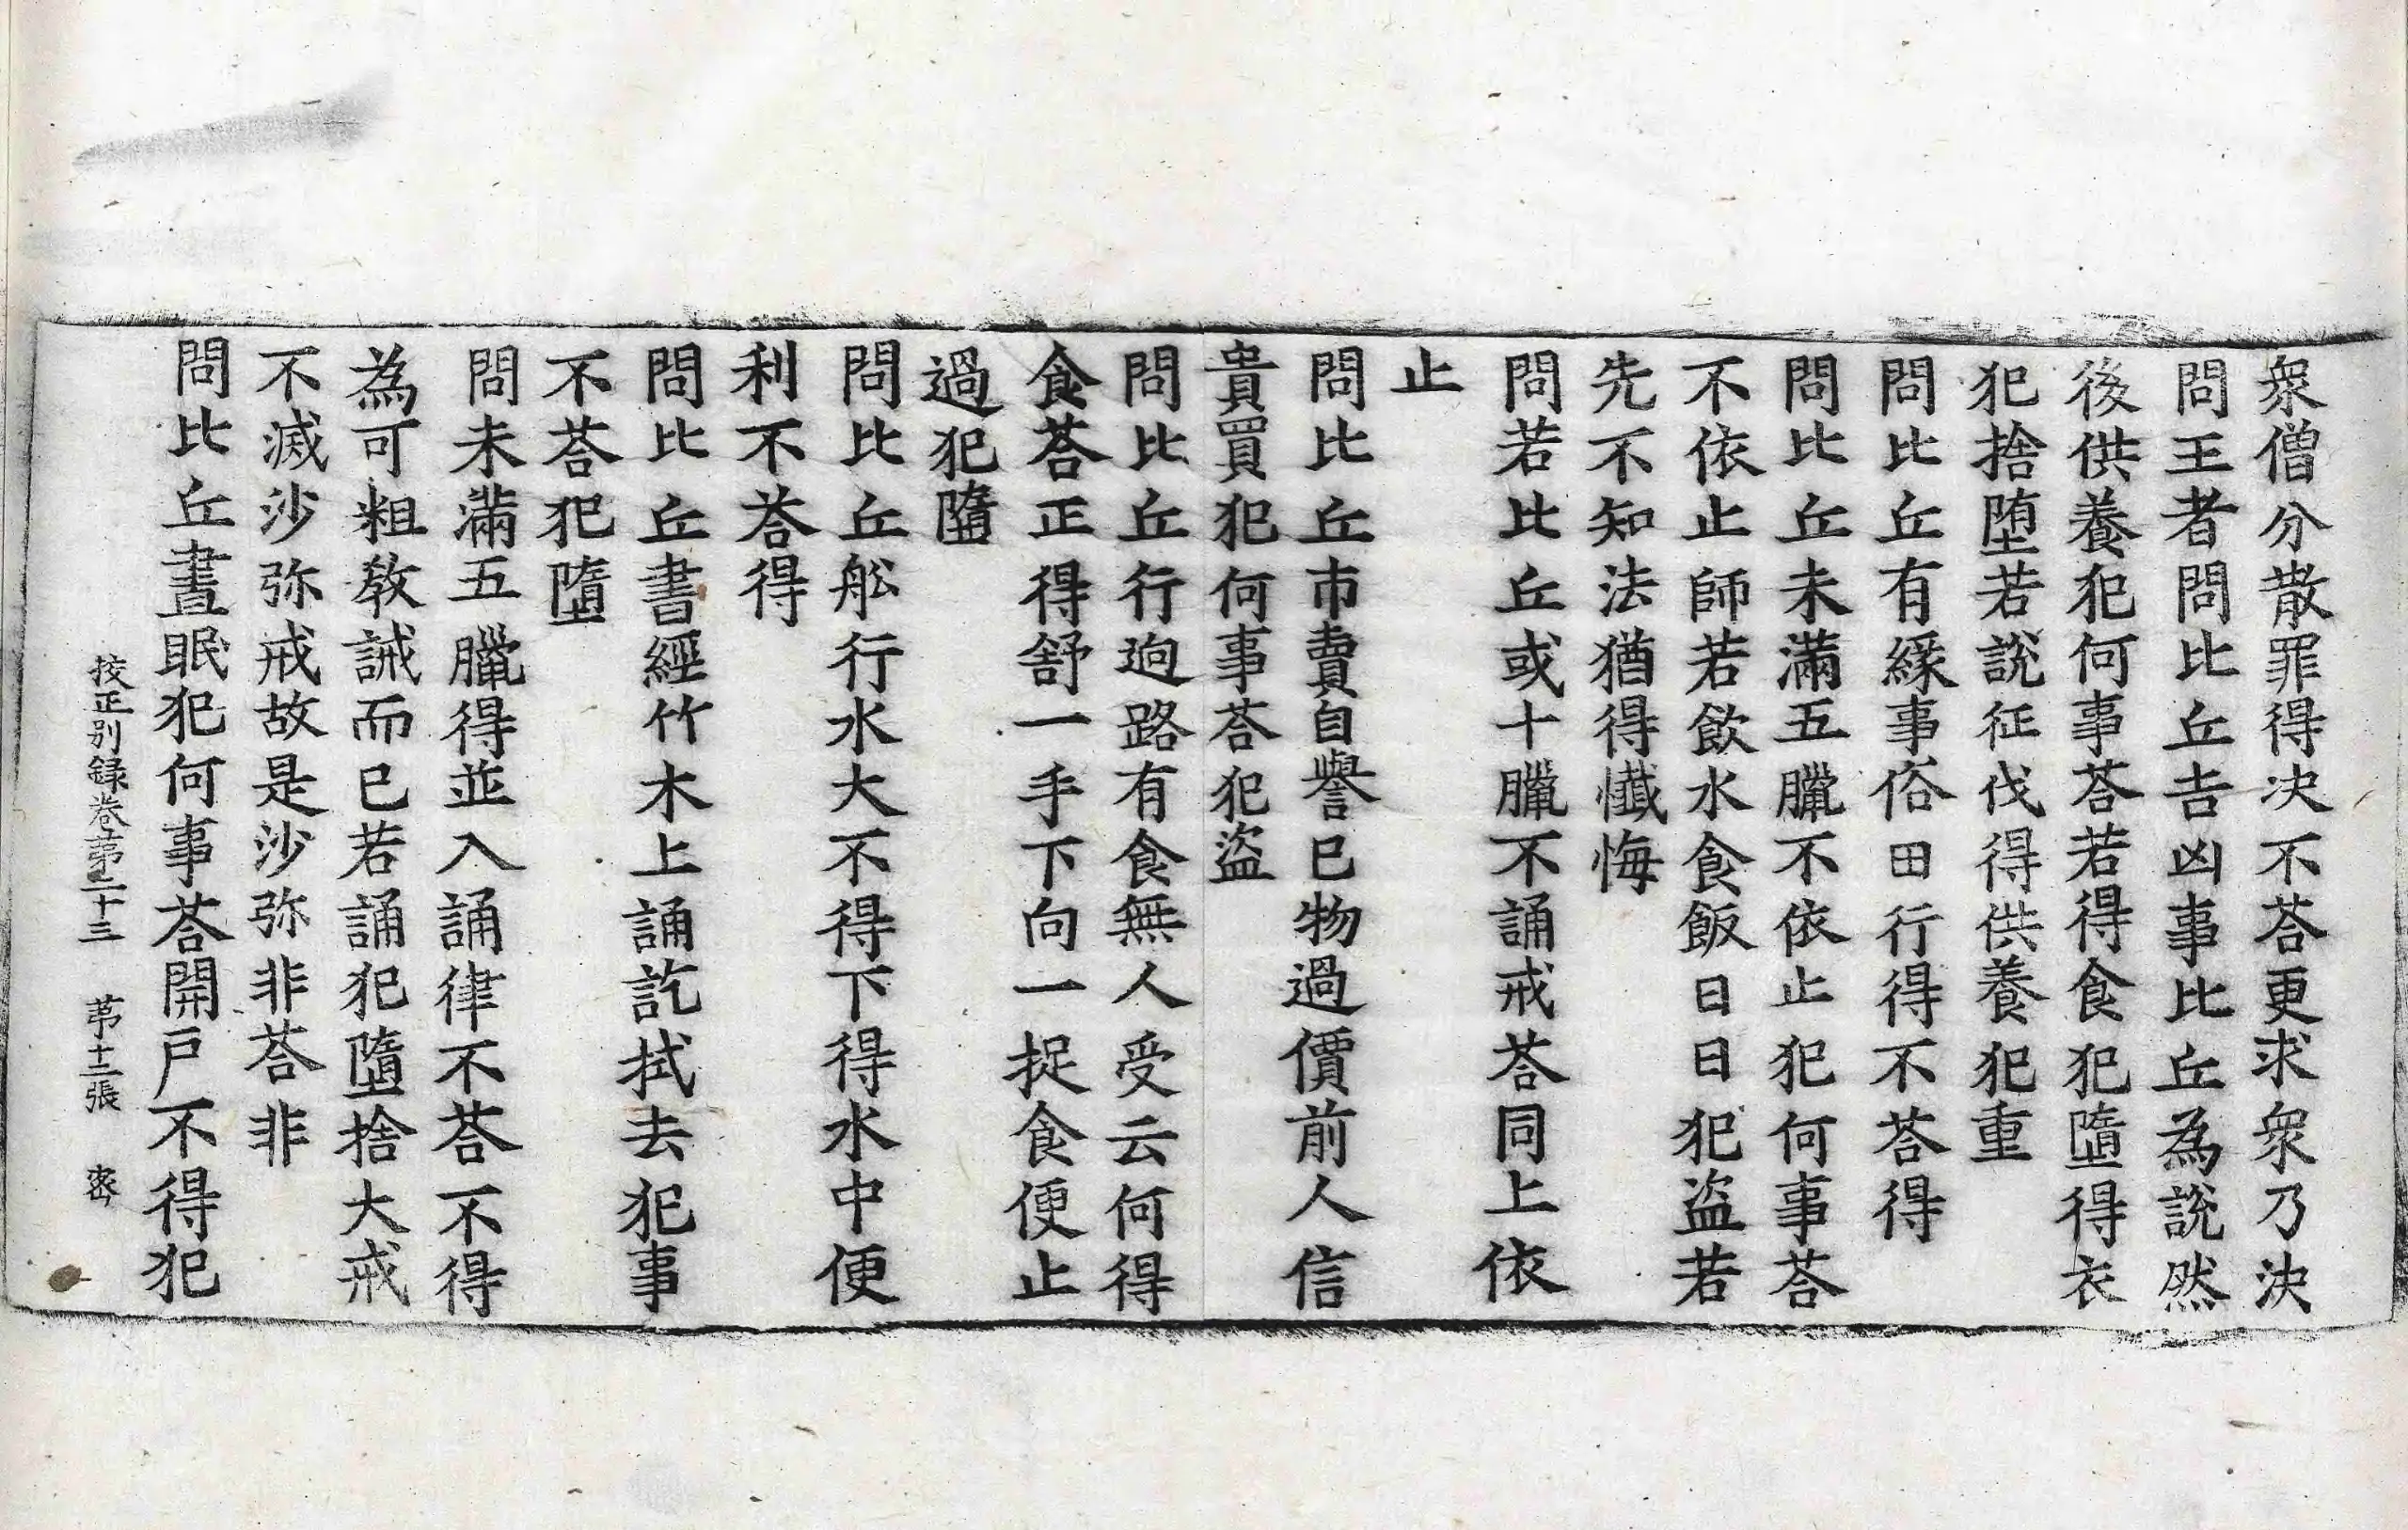 衆僧分散罪得决不荅更求衆乃決
問王者問比丘吉凶事比丘為說然
後供養犯何事荅若得食犯墮得衣
犯捨堕若說征伐得供養犯重
問比丘有緣事俗田行得不荅得
問比丘未滿五臘不依止犯何事荅
不依止師若飲水食飯日日犯盜若
先不知法猶得懺悔
問若比丘或十臘不誦戒荅同上依
止
問比丘市賣自譽已物過價前人信
貴買犯何事荅犯盜
問比丘行逈路有食無人受云何得
食荅正得舒一手下向一捉食便止
過犯墮
問比丘舩行水大不得下得水中便
利不荅得
問比丘書經竹木上誦訖拭去犯事
不荅犯墮
問未滿五臘得並入誦律不荅不得
為可粗教誡而已若誦犯墮捨大戒
不滅沙弥戒故是沙弥非荅非
問比丘晝眠犯何事荅開戶不得犯
挍正別錄卷苐二十三 苐十二張 宻